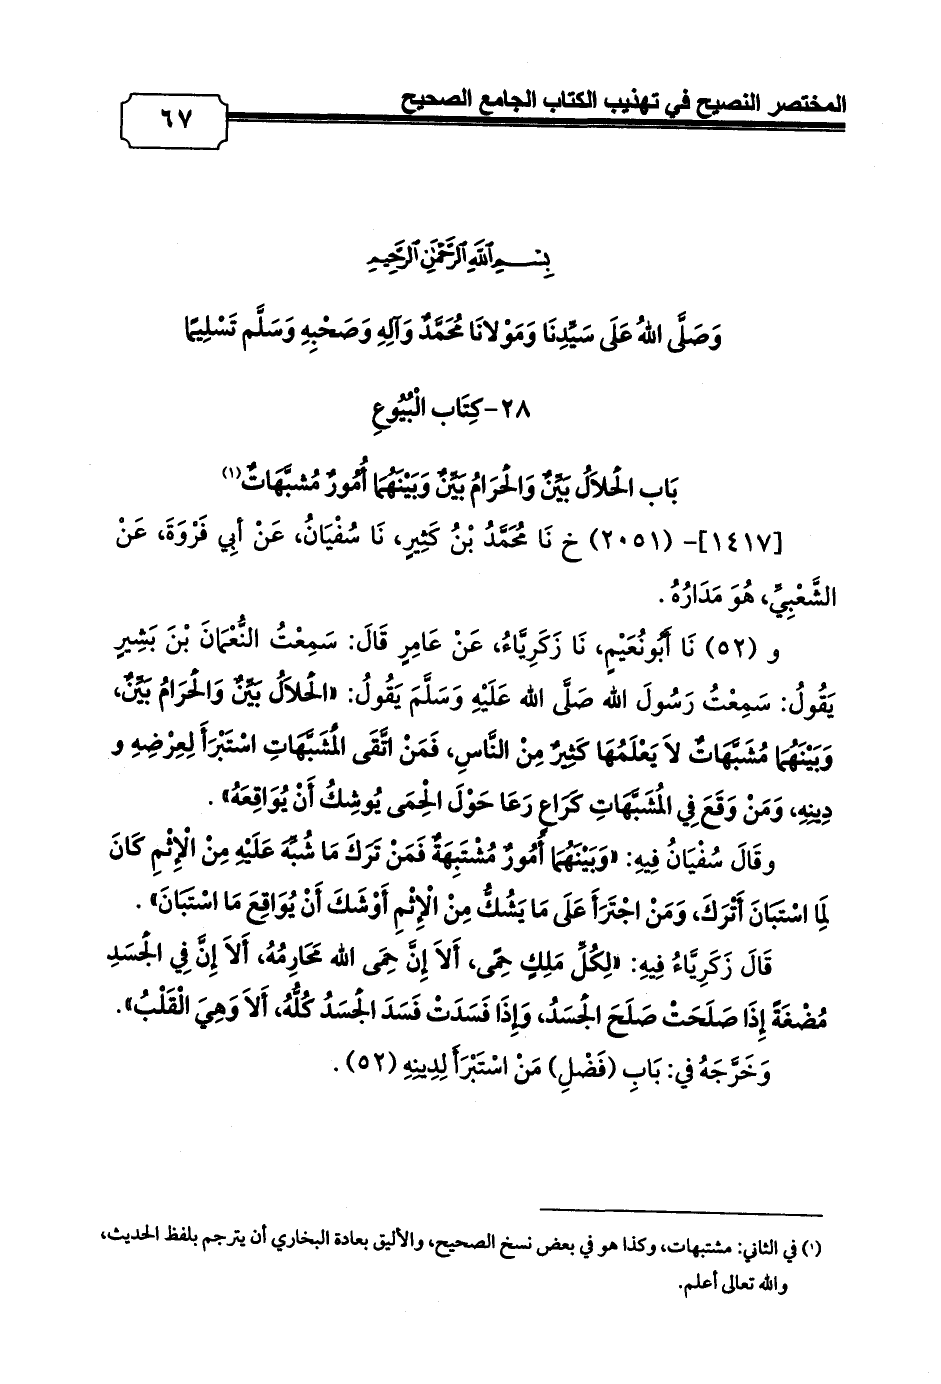 المختصر النصيح في تهذيب الكتاب الجامع الصحيح
٦٧
بِسْمِ اللَّهِ الرَّحْمَنِ الرَّحِيمِ
وَصَلَّى اللهُ عَلَى سَيِّدِنَا وَمَوْلانَا مُحَمَّدٌ وَآلِهِ وَصَحْبِهِ وَسَلَّم تَسْلِيمًا
٢٨- كِتَاب الْبُيُوعِ
بَاب الْحَلَالُ بَيِّنٌ وَالْحَرَامُ بَيِّنٌ وَبَيْنَهُمَا أُمُورٌ مُشَبَّهَاتٌ(١)
[١٤١٧]- (٢٠٥١) خ نَا مُحَمَّدُ بْنُ كَثِيرٍ، نَا سُفْيَانُ، عَنْ أبِي فَرْوَةَ، عَنْ
الشَّعْبِيِّ، هُوَ مَدَارُهُ.
و (٥٢) نَا أَبُونُعَيْمٍ، نَا زَكَرِيَّاءُ، عَنْ عَامِرٍ قَالَ: سَمِعْتُ النُّعْمَانَ بْنَ بَشِيرٍ
يَقُولُ: سَمِعْتُ رَسُولَ الله صَلَّى الله عَلَيْهِ وَسَلَّمَ يَقُولُ: «الْحَلَالُ بَيِّنٌ وَالْحَرَامُ بَيِّنٌ،
وَبَيْنَهُمَا مُشَبَّهَاتٌ لاَ يَعْلَمُهَا كَثِيرٌ مِنْ النَّاسِ، فَمَنْ اتَّقَى الْمُشَبَّهَاتِ اسْتَبْرَأَ لِعِرْضِهِ و
دِينِهِ، وَمَنْ وَقَعَ فِي الْمُشَبَّهَاتِ كَرَاعٍ رَعَا حَوْلَ الْحِمَى يُوشِكُ أَنْ يُوَاقِعَهُ».
وقَالَ سُفْيَانُ فِيهِ: «وَبَيْنَهُمَا أُمُورٌ مُشْتَبِهَةٌ فَمَنْ تَرَكَ مَا شُبِّهَ عَلَيْهِ مِنْ الْإِثْمِ كَانَ
لِمَا اسْتَبَانَ أَتْرَكَ، وَمَنْ اجْتَرَأَ عَلَى مَا يَشُكُّ مِنْ الْإِثْمِ أَوْشَكَ أَنْ يُوَاقِعَ مَا اسْتَبَانَ».
قَالَ زَكَرِيَّاءُ فِيهِ: «لِكُلِّ مَلِكٍ حِمًى، أَلاَ إِنَّ حِمَى الله مَحَارِمُهُ، أَلاَ إِنَّ فِي الْجَسَدِ
مُضْغَةً إِذَا صَلَحَتْ صَلَحَ الْجَسَدُ، وَإِذَا فَسَدَتْ فَسَدَ الْجَسَدُ كُلُّهُ، أَلاَ وَهِيَ الْقَلْبُ».
وَخَرَّجَهُ فِي: بَابِ (فَضْلِ) مَنْ اسْتَبْرَأَ لِدِينِهِ (٥٢).
(١) في الثاني: مشتبهات، وكذا هو في بعض نسخ الصحيح، والأليق بعادة البخاري أن يترجم بلفظ الحديث،
والله تعالى أعلم.